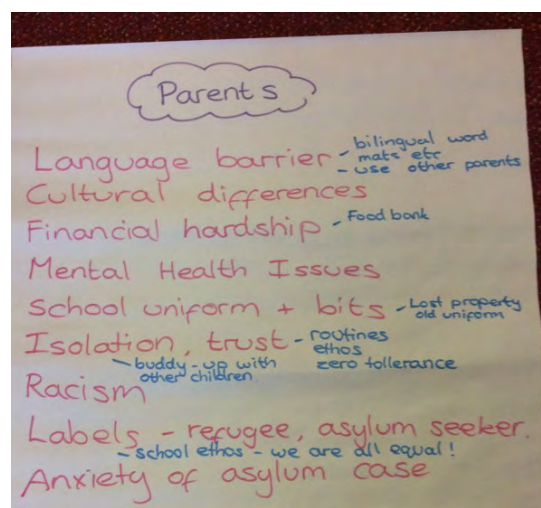 Parents
Language barrier - bilingual word
mats etc
- use other parents
Cultural differences
Financial hardship - Food bank
Mental Health Issues
School uniform + bits - Lost property
old uniform
Isolation, trust - routines
ethos
zero tollerance
- buddy-up with
other children
Racism
Labels - refugee, asylum seeker.
- school ethos - we are all equal!
Anxiety of asylum case